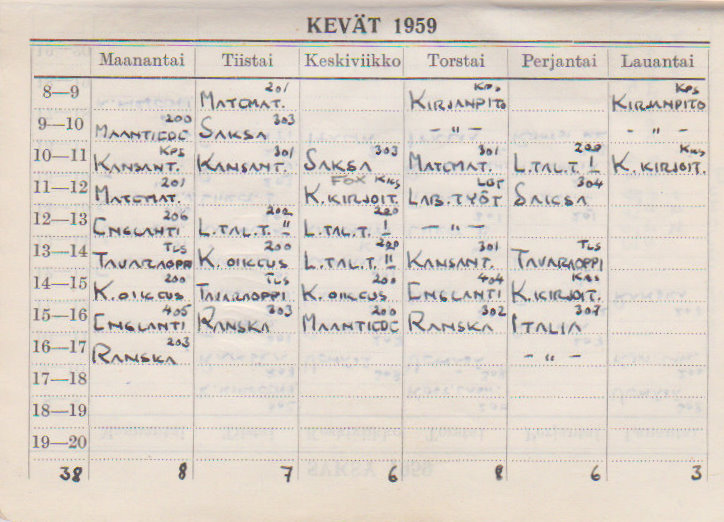 KEVÄT 1959
Maanantai Tiistai Keskiviikko Torstai Perjantai Lauantai
8—9 MATEMAT. 201 KIRJANPITO KPS KIRJANPITO KPS
9—10 MAANTIEDE 200 SAKSA 303 — " — — " —
10—11 KANSANT. KPS KANSANT. 301 SAKSA 303 MATEMAT. 301 L.TAL.T. I 200 K. KIRJOIT. KKS
11—12 MATEMAT. 201 K.KIRJOIT. FOX KKS LAB.TYÖT LBT SAKSA 304
12—13 ENGLANTI 206 L.TAL.T. II 202 L.TAL.T. I 200 — " —
13—14 TAVARAOPPI TLS K. OIKEUS 200 L.TAL.T. II 200 KANSANT. 301 TAVARAOPPI TLS
14—15 K. OIKEUS 200 TAVARAOPPI TLS K. OIKEUS 200 ENGLANTI 404 K.KIRJOIT. KKS
15—16 ENGLANTI 405 RANSKA 303 MAANTIEDE 200 RANSKA 302 ITALIA 307
16—17 RANSKA 203 — " —
17—18
18—19
19—20
38 8 7 6 8 6 3